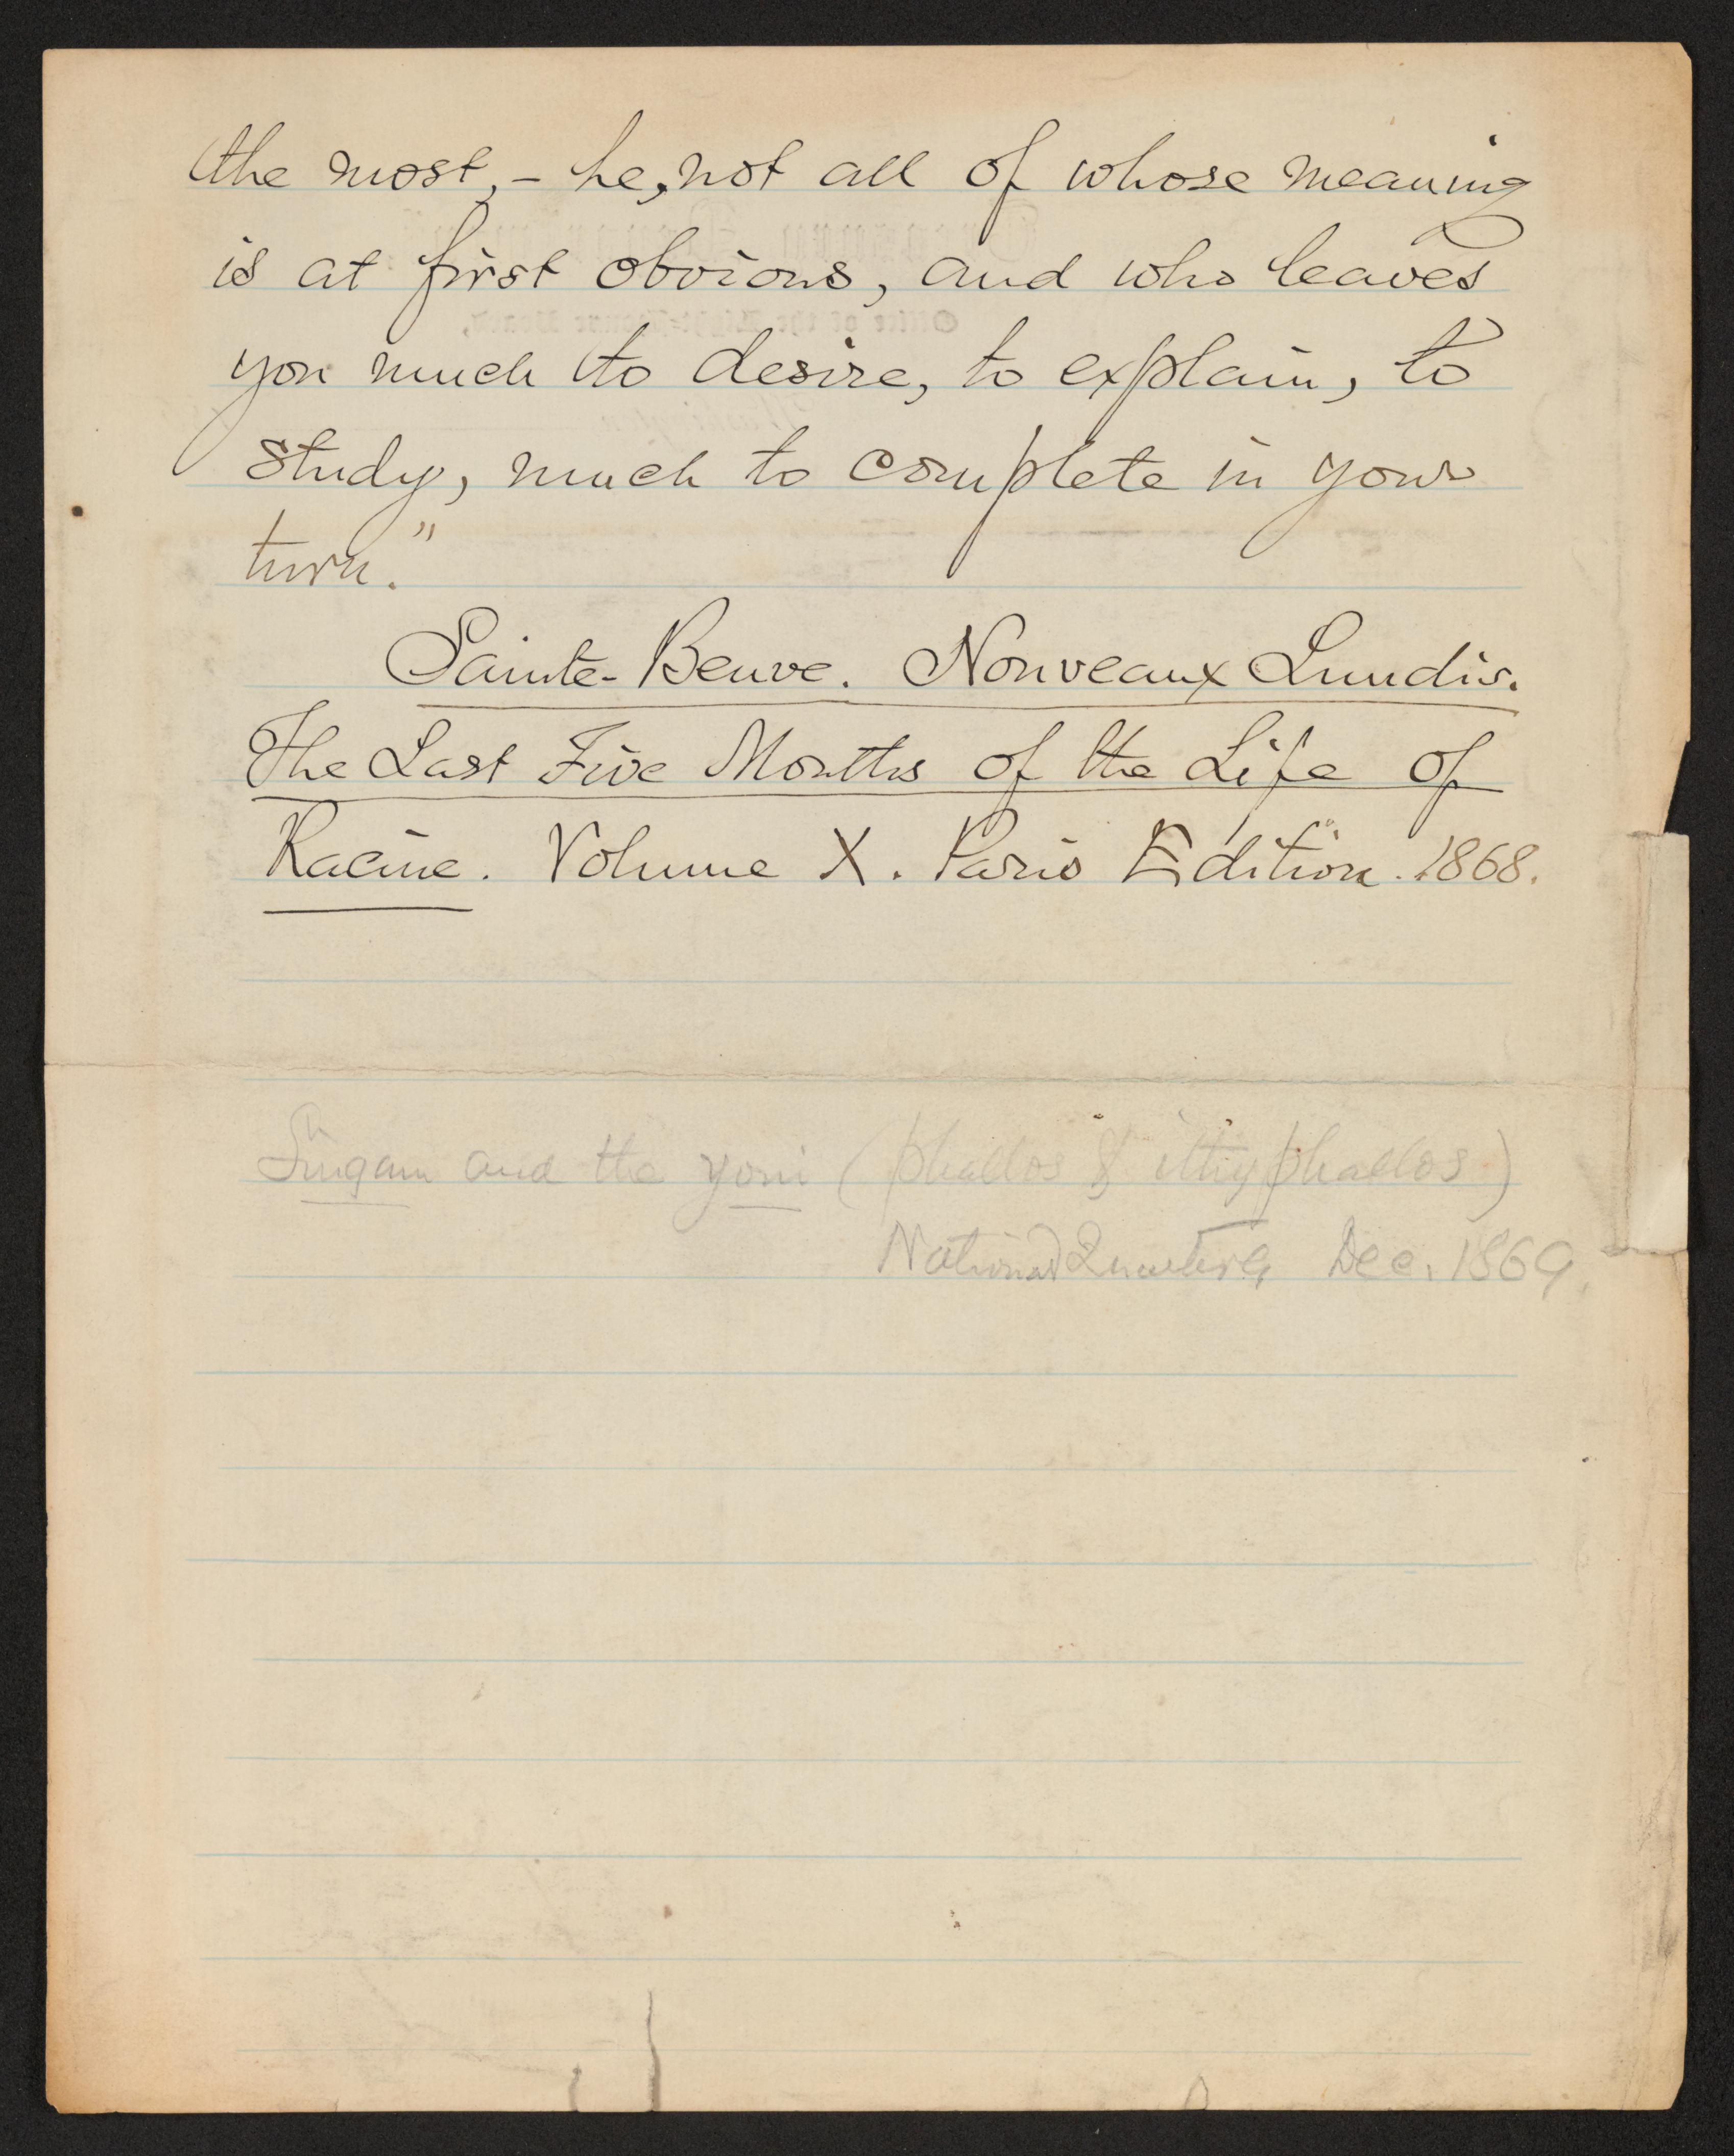 the most, – he, not all of whose meaning
is at first obvious, and who leaves
you much to desire, to explain, to
study, much to complete in your
turn."
Sainte-Beuve. Nouveaux Lundis.
The Last Five Months of the Life of
Racine. Volume X. Paris Edition. 1868.
Lingam and the yoni (phallos & ithyphallos)
National Quarterly Dec. 1869.